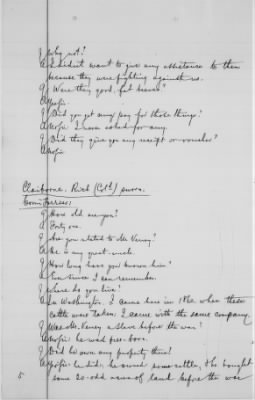 Q Why not?
A I didn't want to give any assistance to them
because they were fighting against us.
Q Were they good, fat beeves?
A Yes sir.
Q Did you get any pay for those things?
A No sir. I never asked for any.
Q Did they give you any receipt or voucher?
A No sir.
Claiborne. Rich (Col'd) sworn.
Com. Ferriss:
Q How old are you?
A Forty one.
Q Are you related to Mr. Veney?
A He is my great-uncle.
Q How long have you known him?
A Ever since I can remember.
Q Where do you live?
A In Washington. I came here in 1862 when these
cattle were taken; I came with the same company.
Q Was Mr. Veney a slave before the war?
A No sir; he was free-born.
Q Did he own any property then?
A Yes sir he did; he owned some cattle, & he bought
some 20-odd acres of land before the war
5